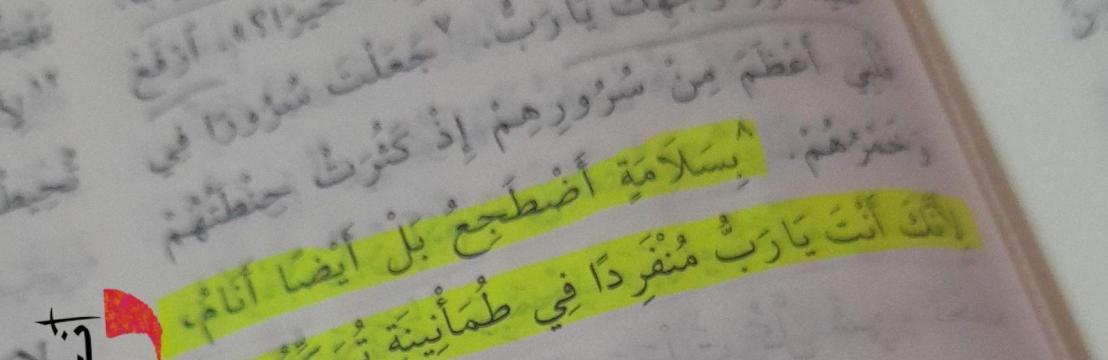 يَارَبُّ. ٧ جَعَلْتَ سُرُورًا فِي
قَلْبِي أَعْظَمَ مِنْ سُرُورِهِمْ إِذْ كَثُرَتْ حِنْطَتُهُمْ
وَخَمْرُهُمْ. ٨ بِسَلَامَةٍ أَضْطَجِعُ بَلْ أَيْضًا أَنَامُ،
لأَنَّكَ أَنْتَ يَارَبُّ مُنْفَرِدًا فِي طُمَأْنِينَةٍ